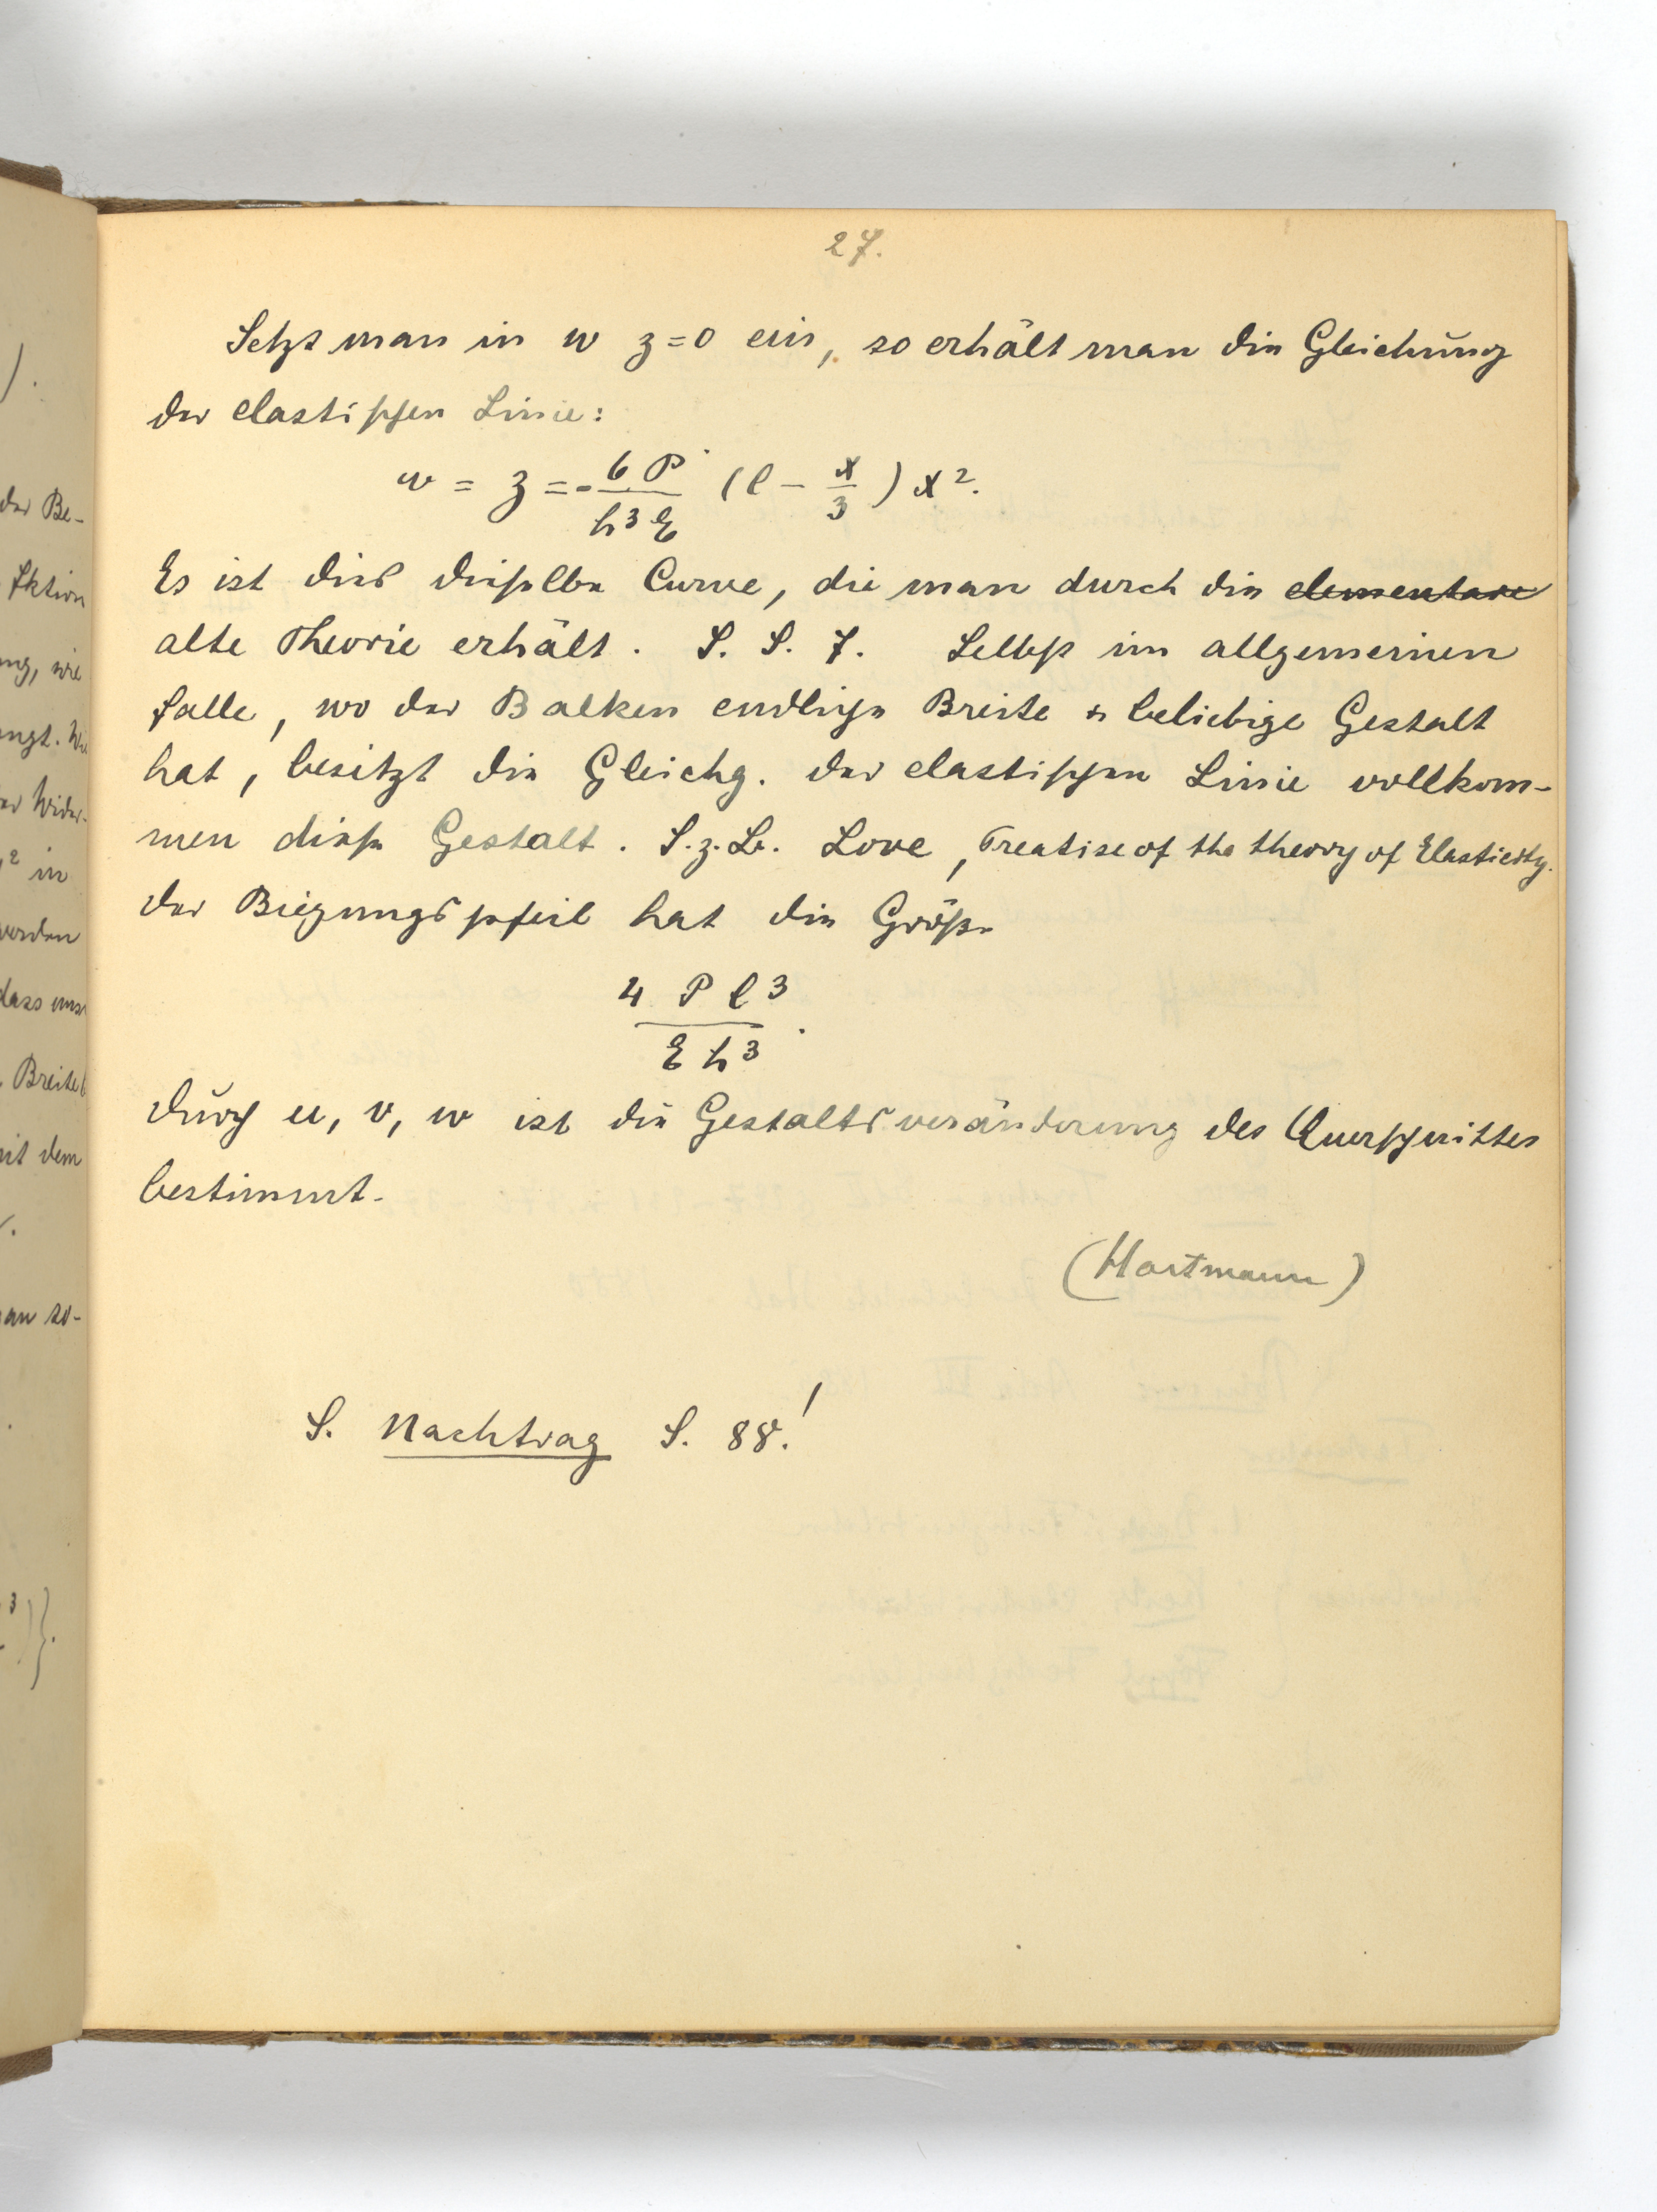 27.
Setzt man in w z=0 ein, so erhält man die Gleichung
der elastischen Linie:
w = z = - 6 P / h³ E (l - x/3) x².
Es ist dies dieselbe Curve, die man durch die elementare
alte Theorie erhält. S. S. 7. Selbst im allgemeinen
Falle, wo der Balken endliche Breite u beliebige Gestalt
hat, besitzt die Gleichg. der elastischen Linie vollkom-
men diese Gestalt. S. z. B. Love, Treatise of the theory of Elasticity.
Der Biegungspfeil hat die Größe
4 P l³ / E h³.
Durch u, v, w ist die Gestaltsveränderung des Querschnittes
bestimmt.
(Hartmann)
S. Nachtrag S. 88!
der Be-
ng, wie
ngt. Wie
² in
werden
dass uns
Breite b
mit dem
an so-